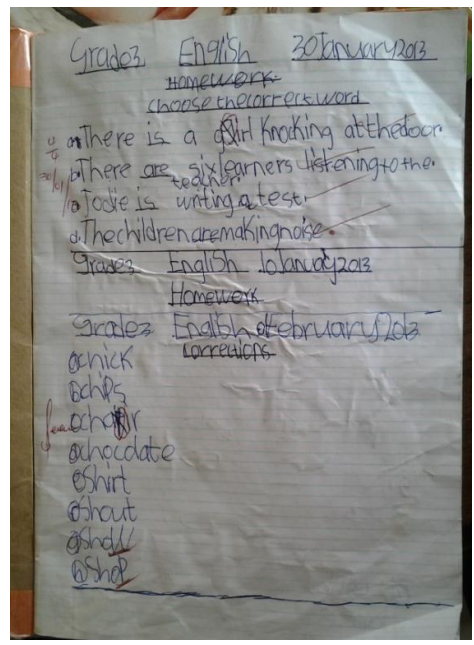 Grade3 English 30January2013
Homework
choose the correct word
a. There is a girl knocking at the door.
b. There are six learners listening to the
teacher.
c. Jodie is writing a test.
d. The children are making noise.
Grade3 English 10January2013
Homework
Grade3 English February2013
corrections
chick
chips
chair
chocdate
shirt
shout
show
shop